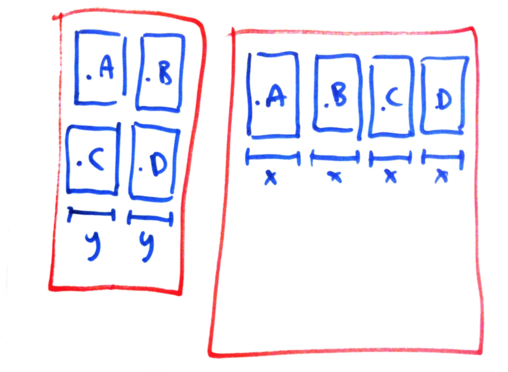 .A .B
.C .D
y y
.A .B .C .D
x x x x